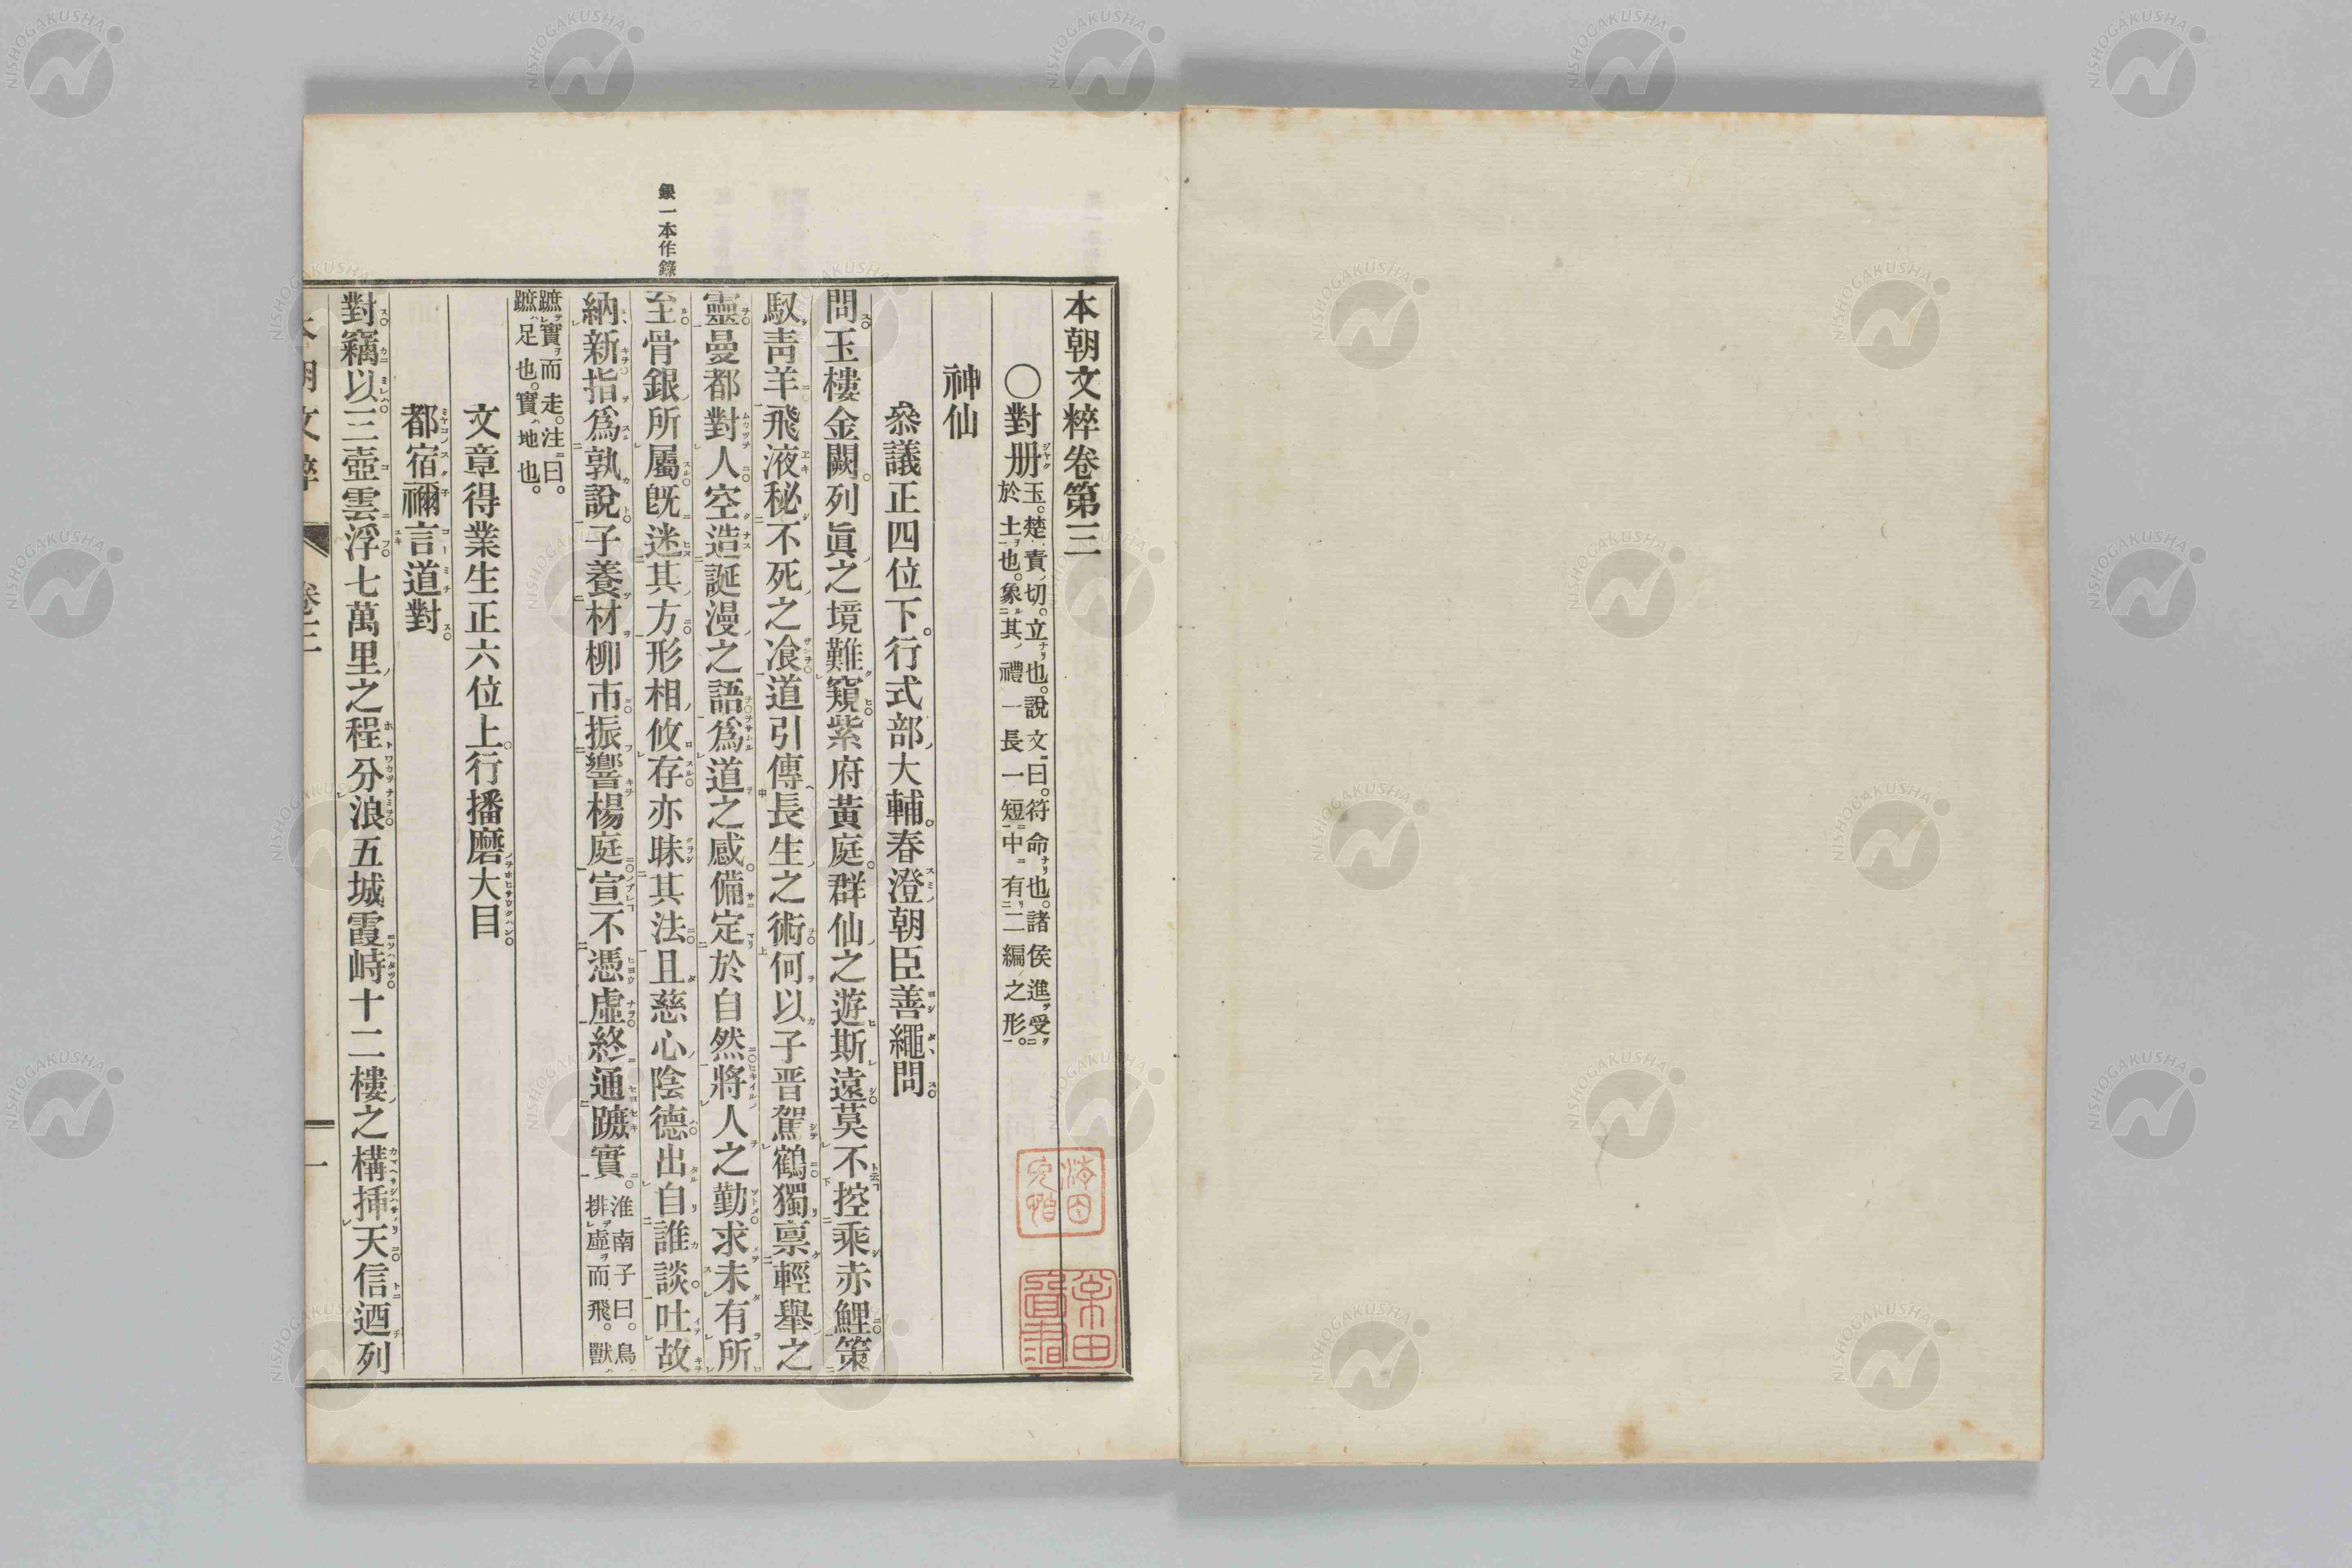 本朝文粹卷第三
〇對册玉。楚責切。立也。說文曰。符命也。諸侯進受
於土也。象其禮一長一短中有二編之形。
神仙
參議正四位下。行式部大輔。春澄朝臣善繩問
問玉樓金闕。列眞之境難窺紫府黃庭。群仙之遊斯遠莫不控乘赤鯉策
馭靑羊飛液秘不死之飡道引傳長生之術何以子晋駕鶴獨禀輕舉之
靈曼都對人空造誕漫之語爲道之感。備定於自然將人之勤求未有所
至骨銀所屬旣迷其方形相攸存亦昧其法且慈心陰德出自誰談。吐故
納新指爲孰說子養材柳市振響楊庭宣不憑虛終通蹠實。淮南子曰。鳥
排虛而飛。獸
蹠實而走。注曰。
蹠足也。實地也。
文章得業生正六位上。行播磨大目
都宿禰言道對
對竊以三壺雲浮七萬里之程分浪五城霞峙十二樓之構挿天信迺列
銀一本作錄
本朝文粹 卷三 一
NISHOGAKUSHA